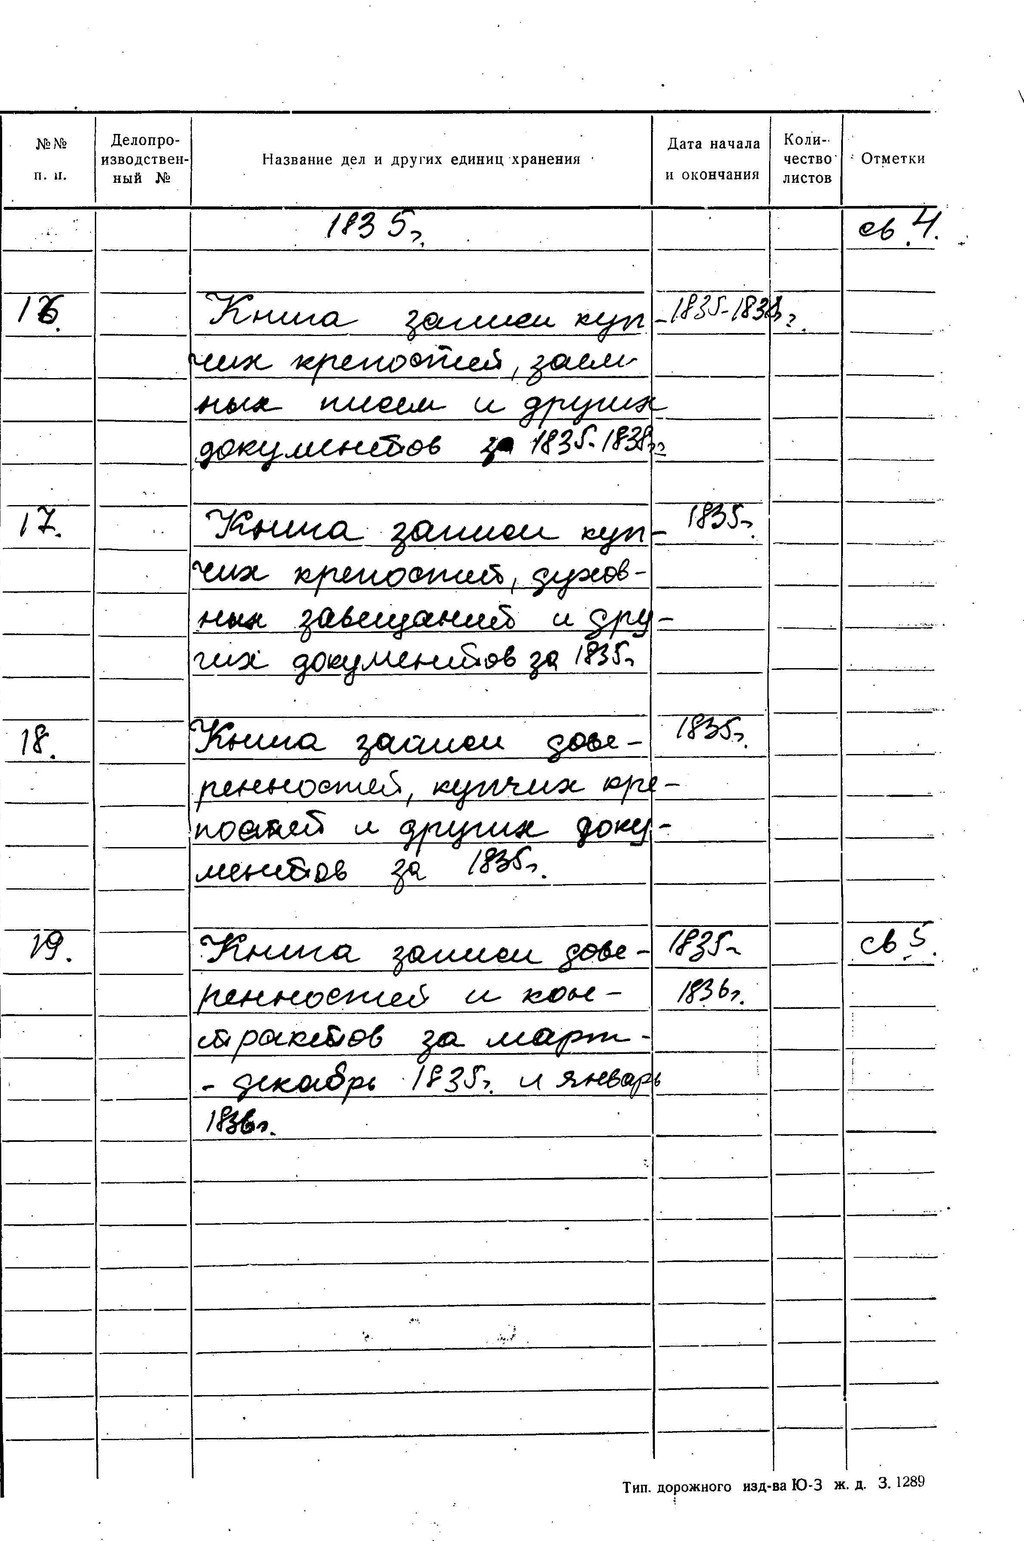 №№ п. п.
Делопро-
изводствен-
ный №
Название дел и других единиц хранения
Дата начала
и окончания
Коли-
чество
листов
Отметки
1835г. св. 4.
16. Книга записи куп- 1835-1838г.
чих крепостей, заем-
ных писем и других
документов за 1835-1838гг
17. Книга записи куп- 1835г.
чих крепостей, духов-
ных завещаний и дру-
гих документов за 1835г
18. Книга записи дове- 1835г.
ренностей, купчих кре-
постей и других доку-
ментов за 1835г.
19. Книга записи дове- 1835г- св 5.
ренностей и кон- 1836г.
трактов за март-
- декабрь 1835г. и январь
1836г.
Тип. дорожного изд-ва Ю-З ж. д. З. 1289